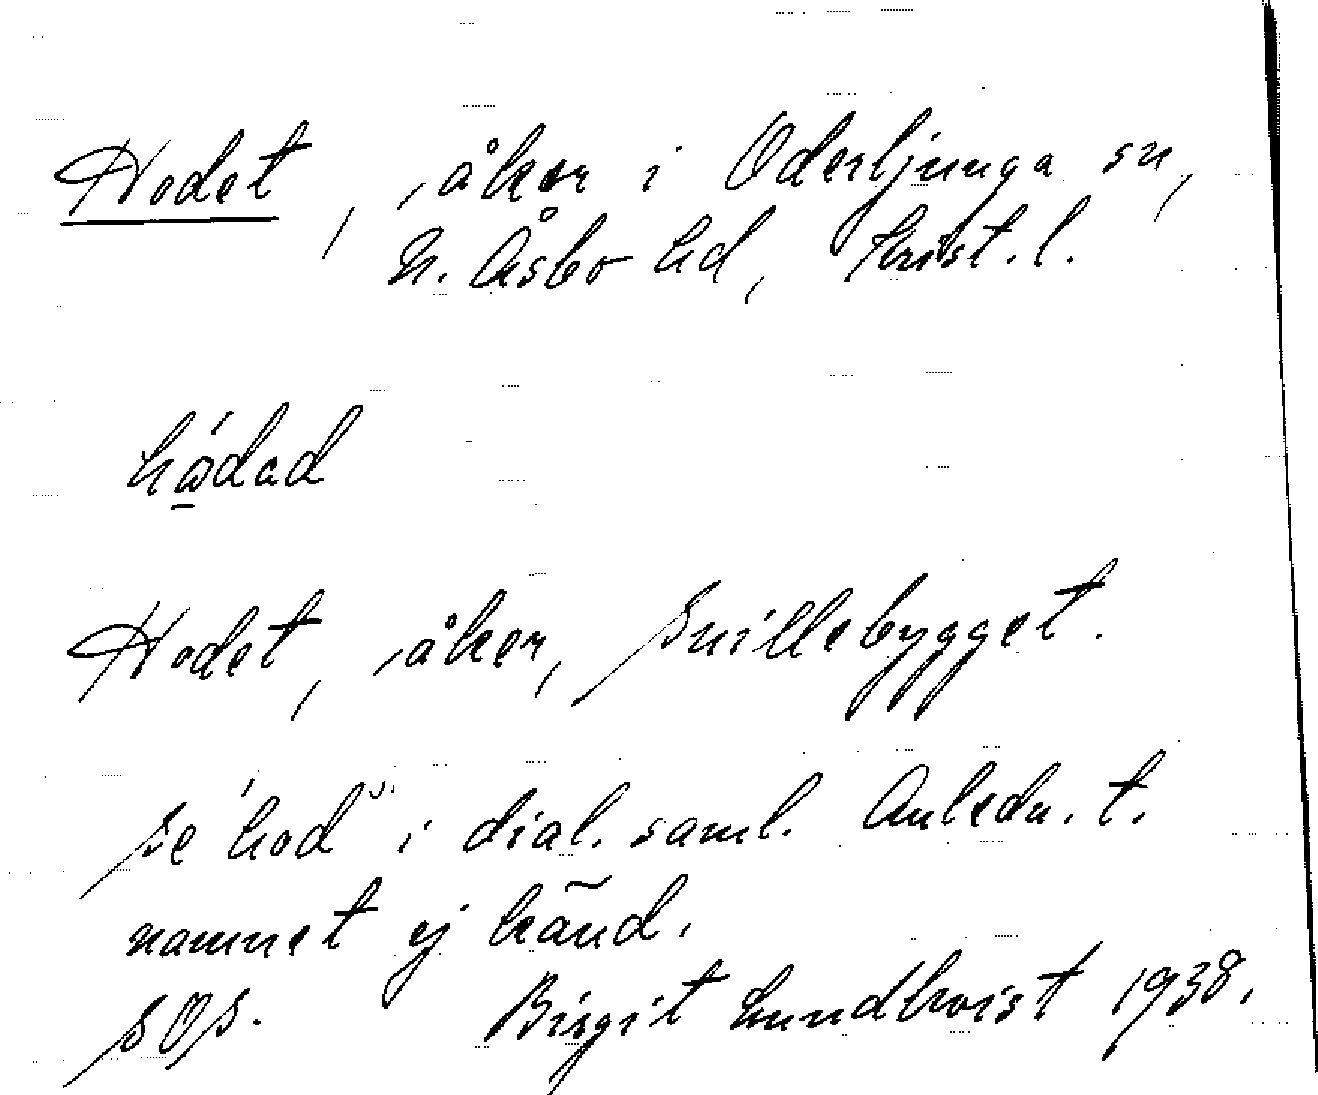 Hodet, åker i Oderljunga sn,
N. Åsbo hd, Krist. l.
hådad
Hodet, åker, Snillebygget.
Se "hod" i dial. saml. Anledn. t.
namnet ej känd.
SOS. Birgit Lundkvist 1938.